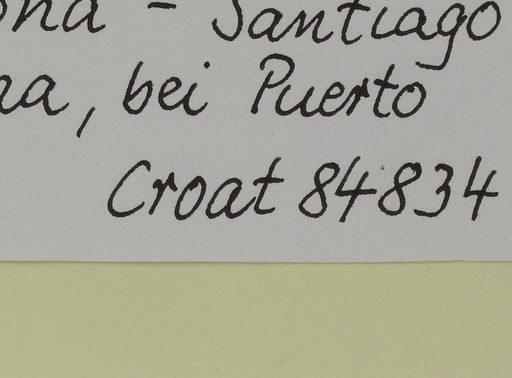 - Santiago
, bei Puerto
Croat 84834